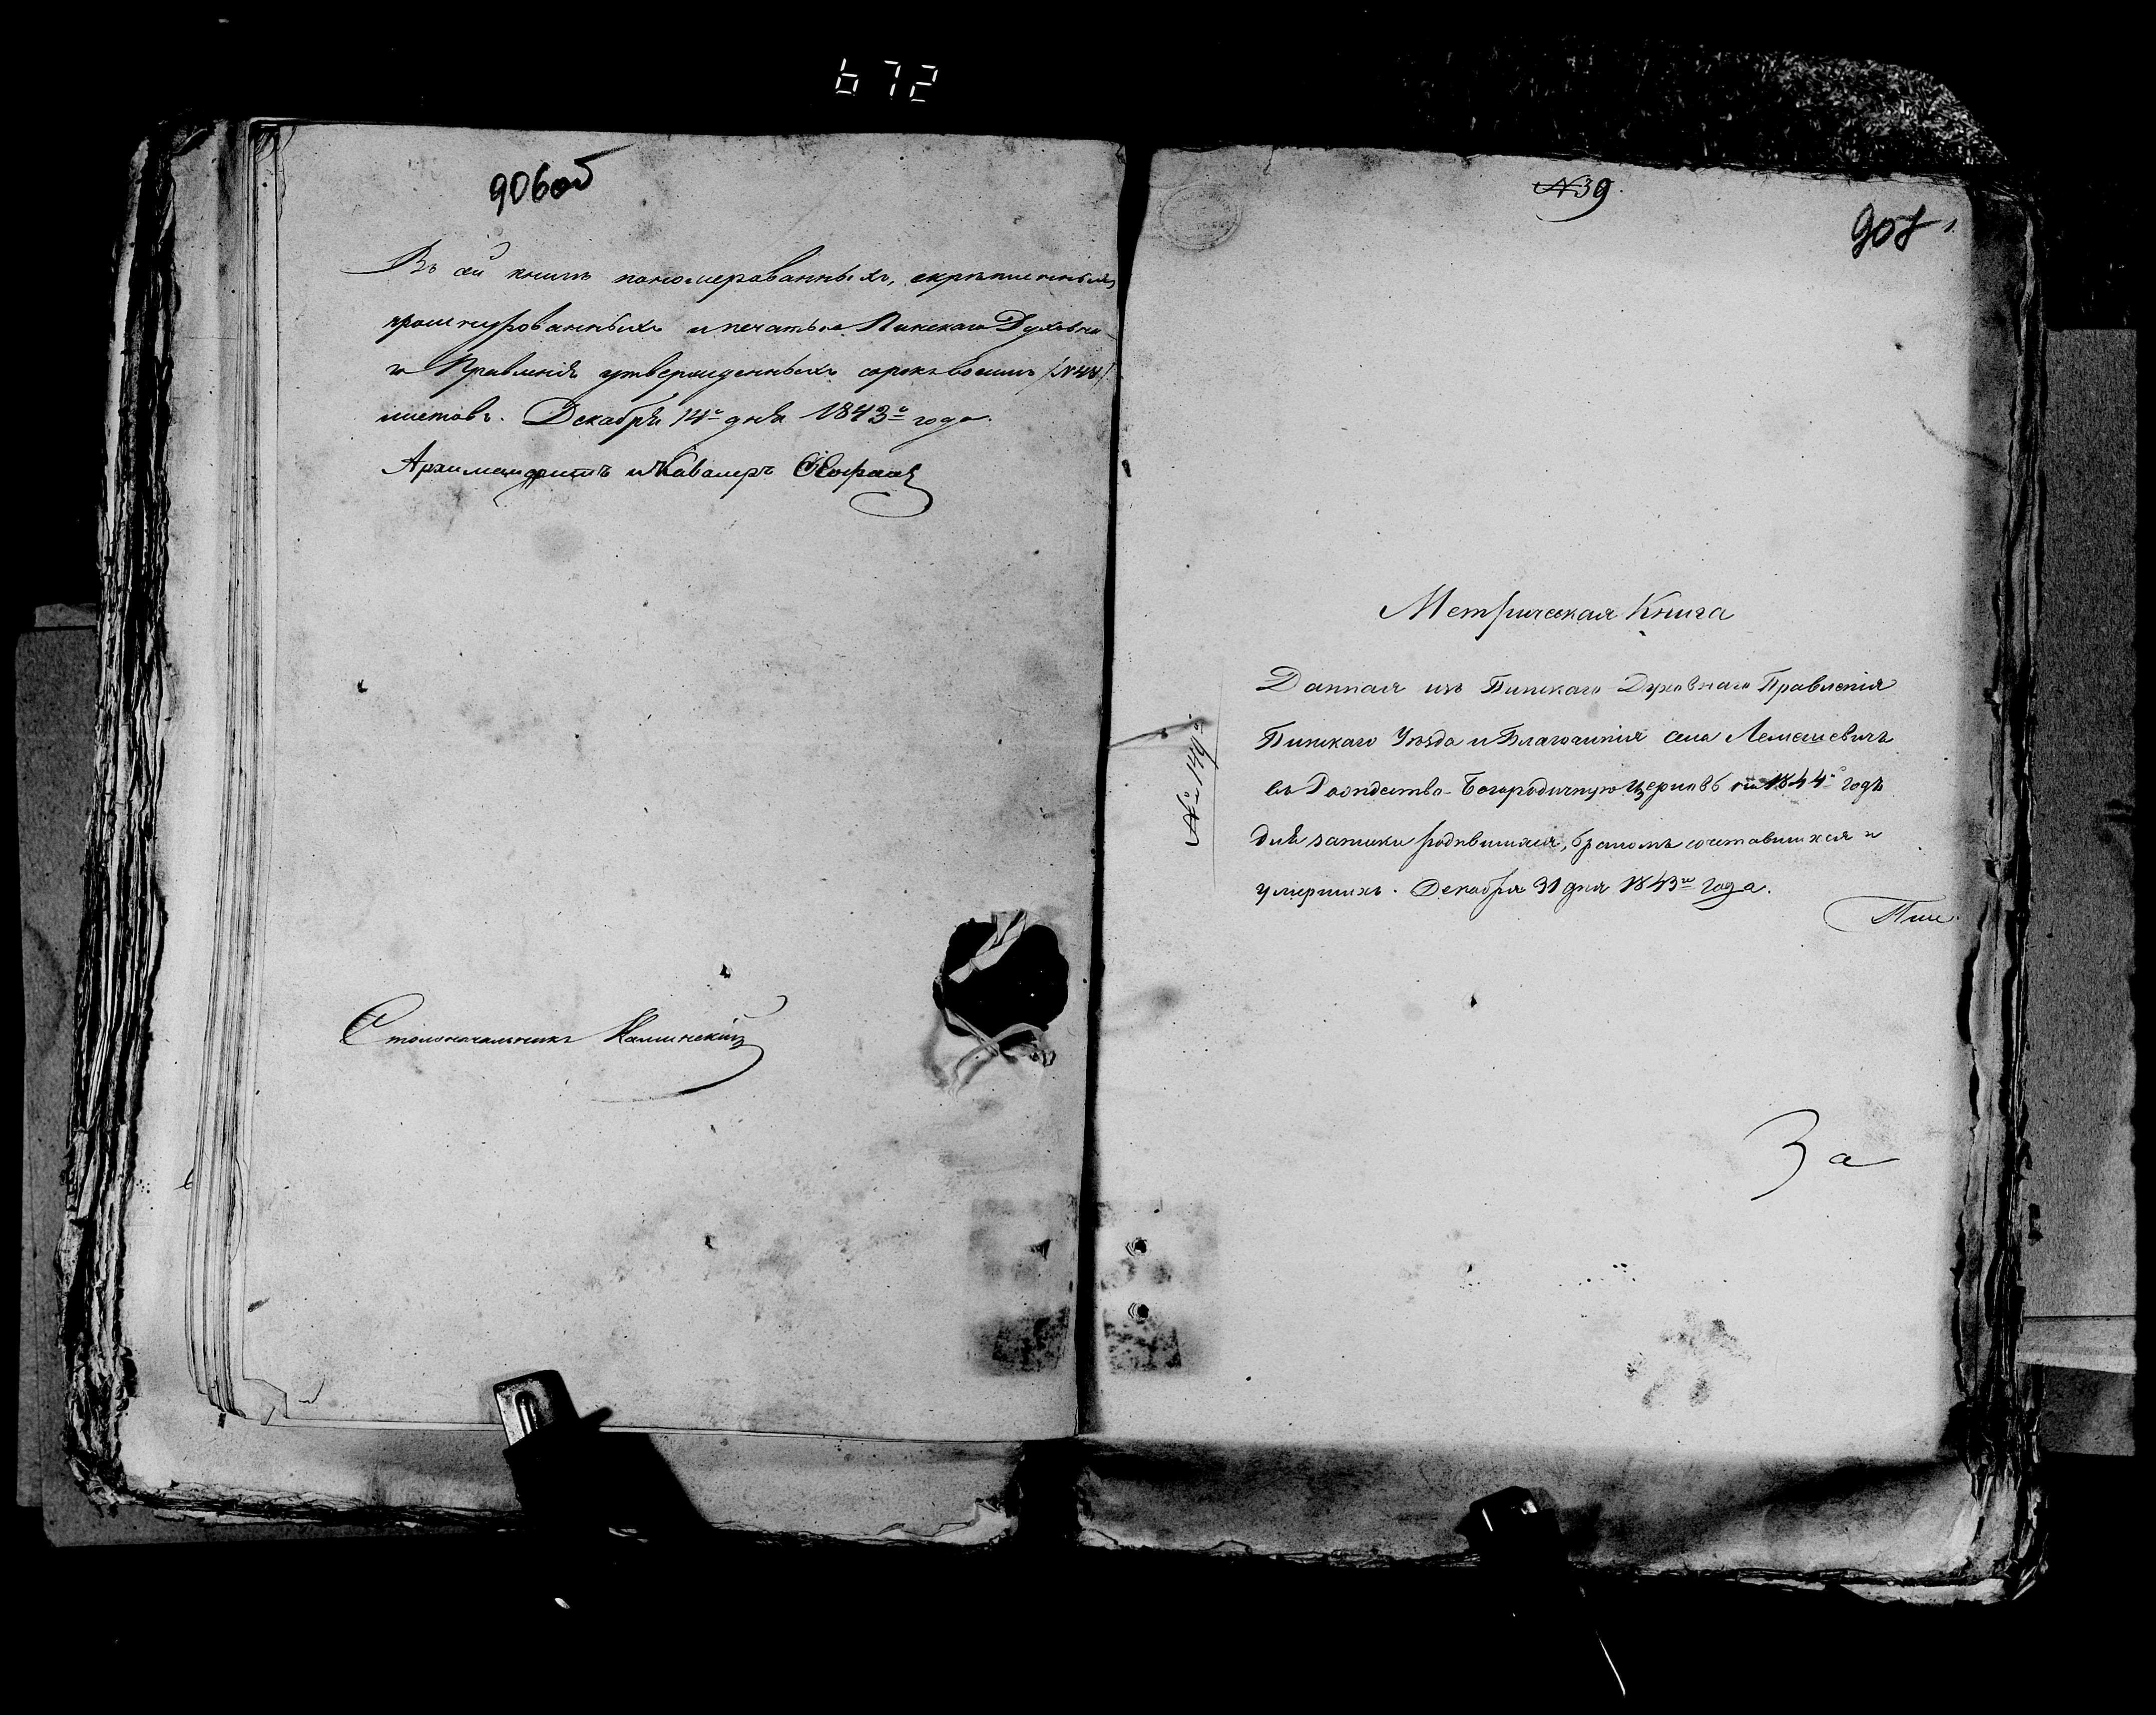 672
906об
Въ сей книгѣ паномерованныхъ, скрѣпленныхъ
прошнурованныхъ и печатью Пинскаго Духовна-
го Правленія утвержденныхъ сорокъ восемь /№ 48/
листовъ. Декабря 14го дня 1843го года.
Архимандритъ и Кавалеръ
Столоначальникъ Калинскій
№39.
907 1.
Метрическая Книга
Данная изъ Пинскаго Духовнаго Правленія
Пинскаго Уѣзда и Благочинія села Лемешевичъ
въ Рождество-Богородичную Церковь на 1844й годъ
для записки родившихся, бракомъ сочетавшихся и
умершихъ. Декабря 31 дня 1843го Года.
№ 149й
Пин
За